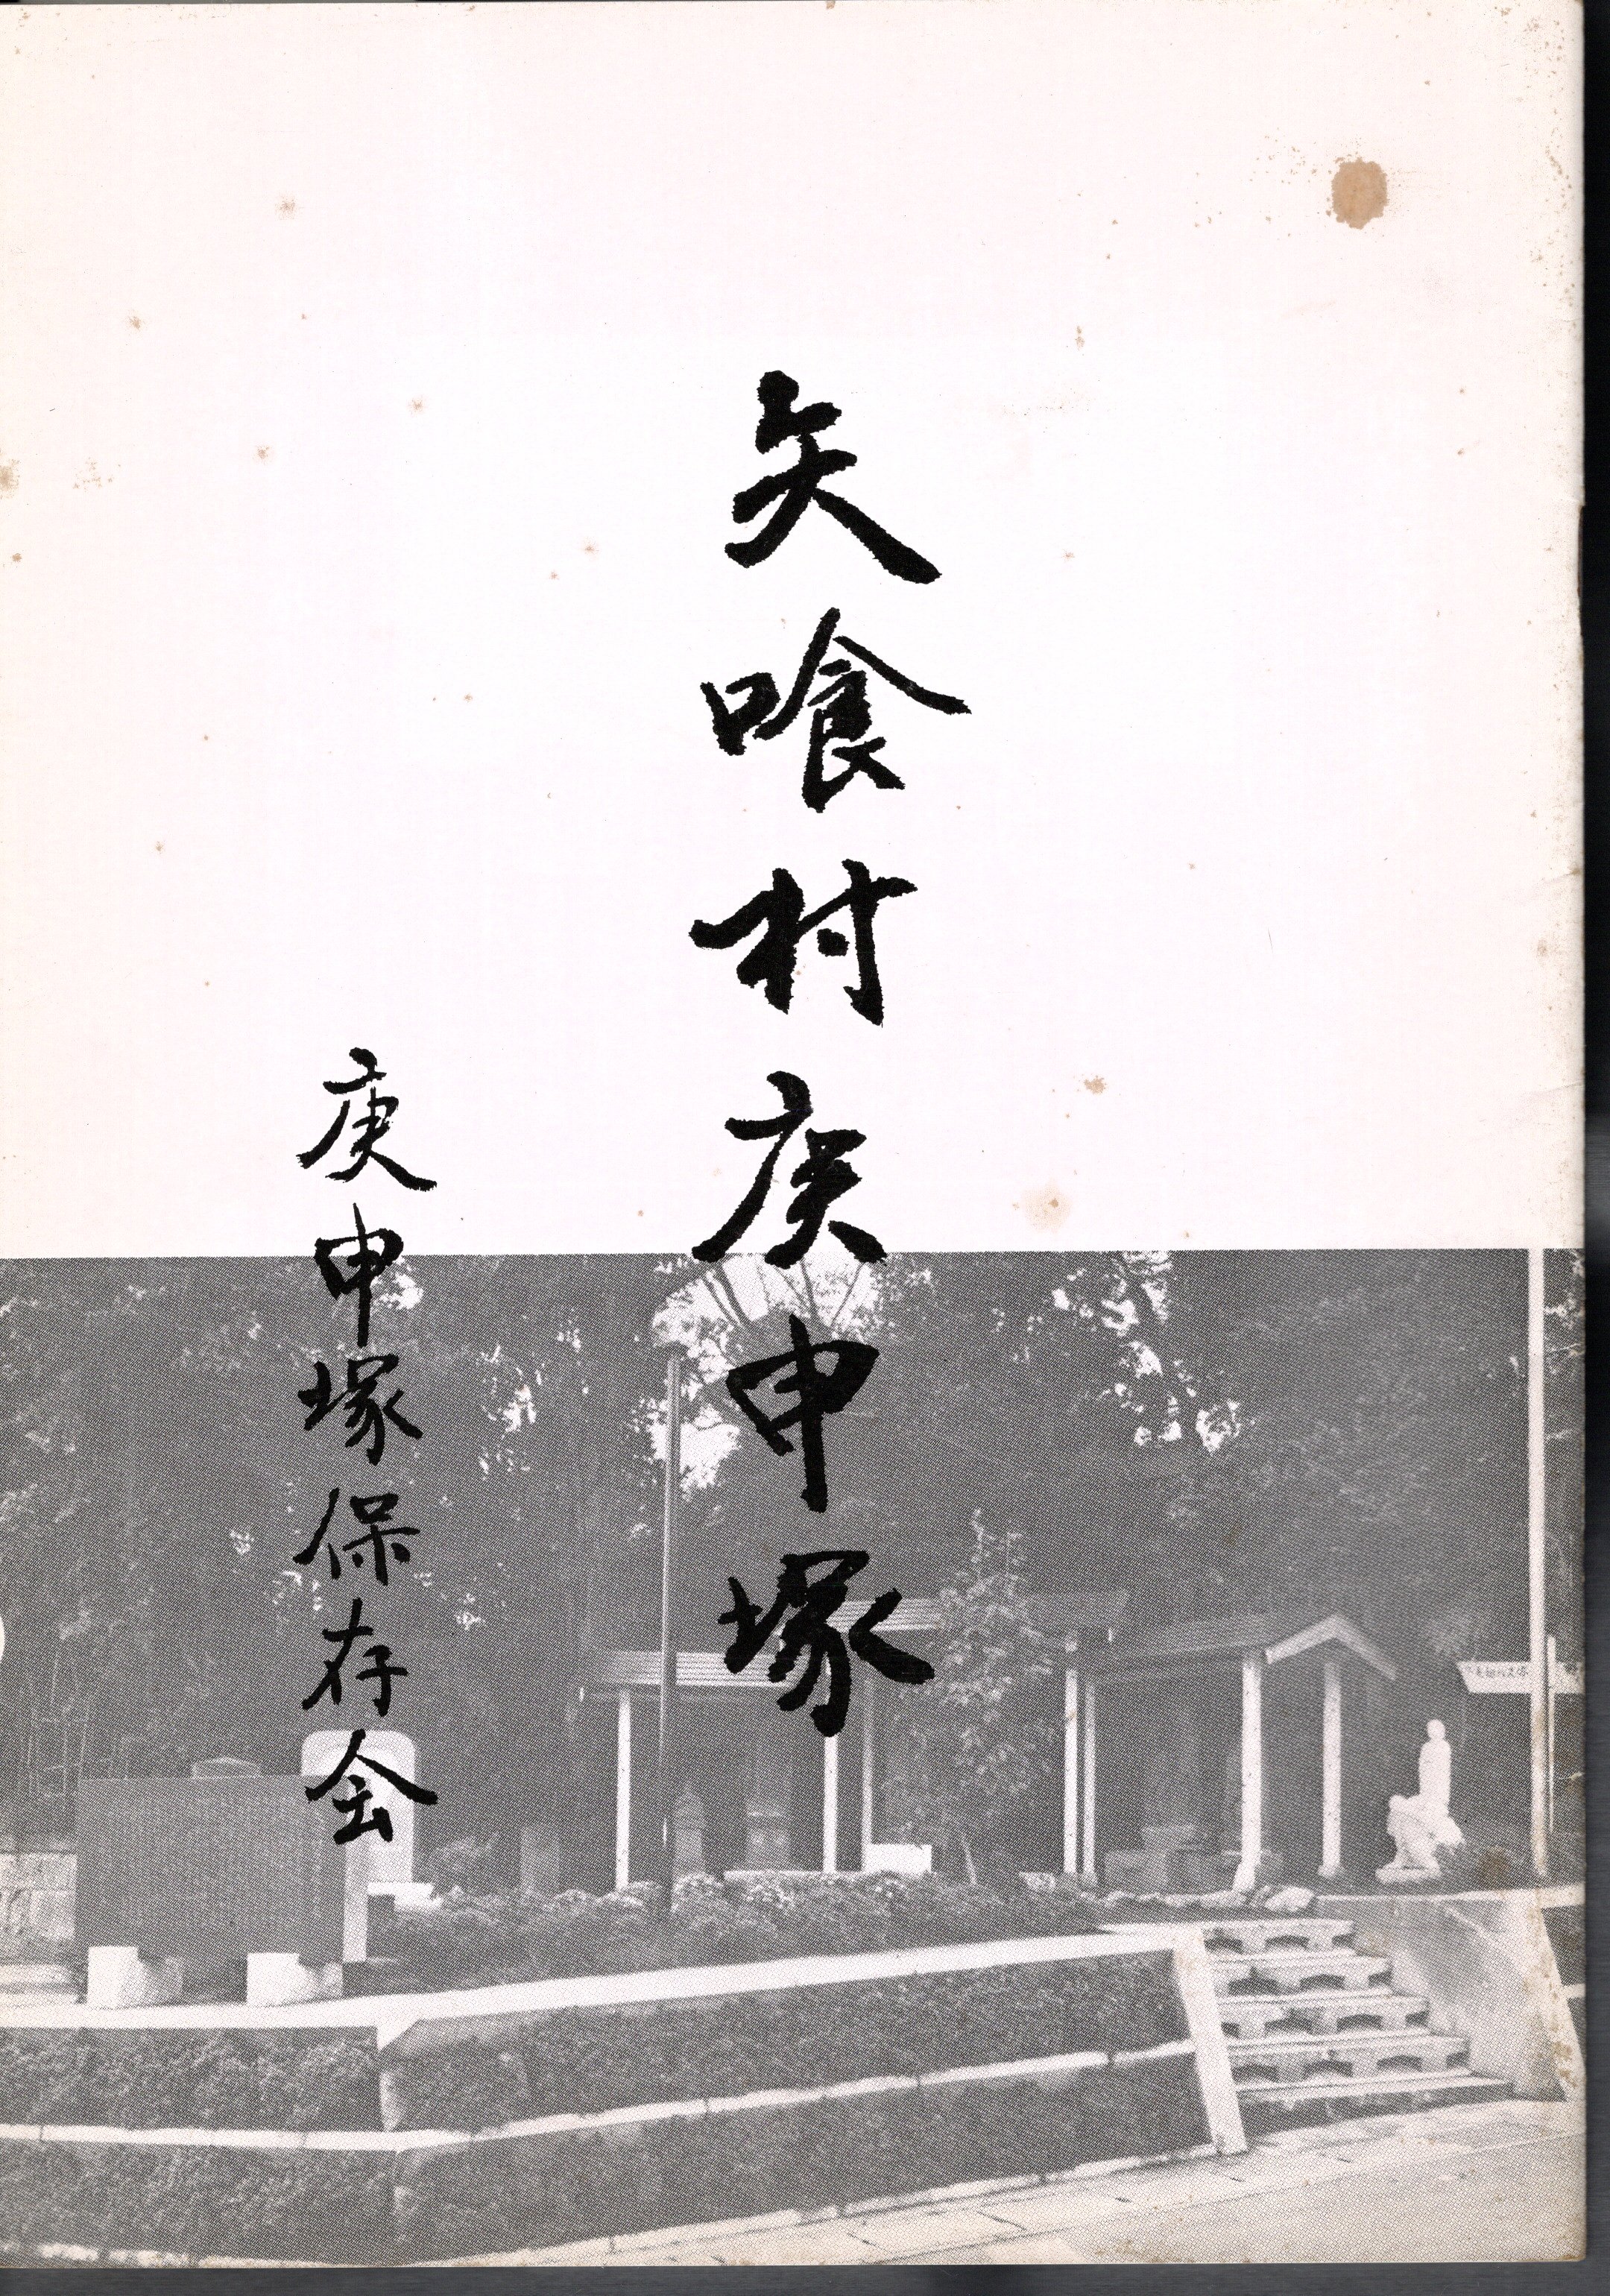 矢喰村庚申塚
庚申塚保存会